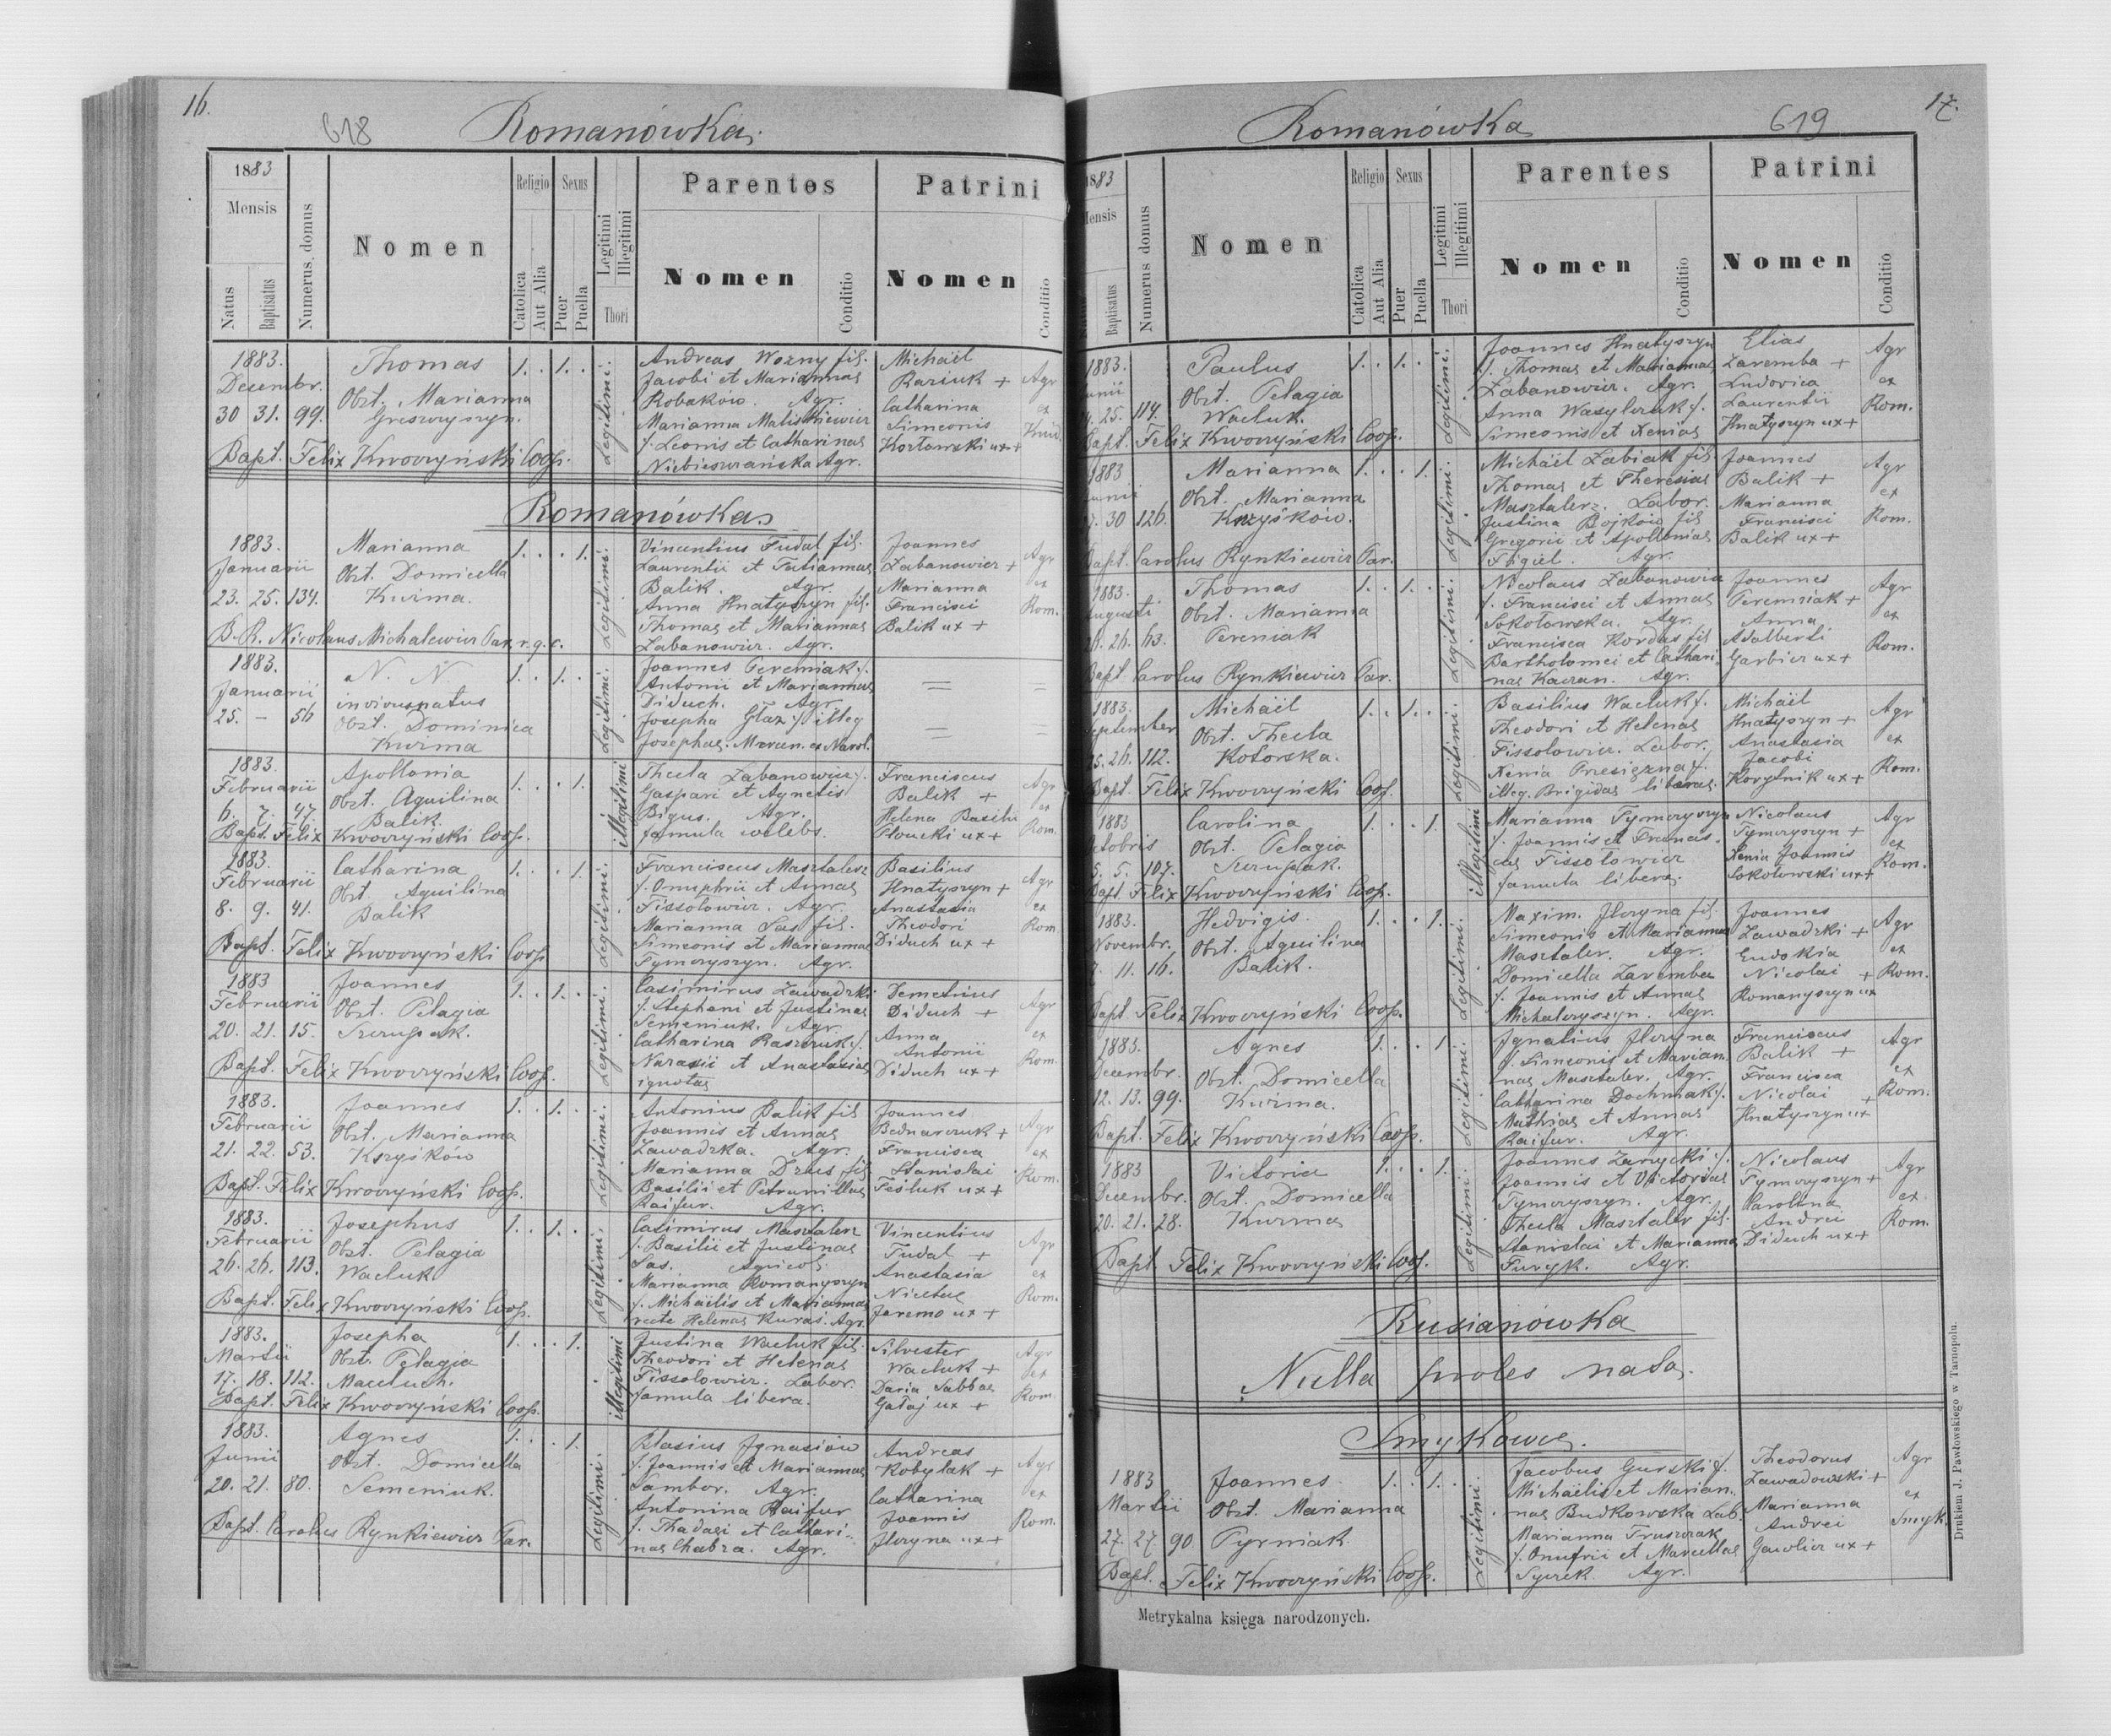 16.
618
Romanówka.
1883
Mensis
Natus
Baptisatus
Numerus domus
Nomen
Religio
Catolica
Aut Alia
Sexus
Puer
Puella
Legitimi
Illegitimi
Thori
Parentes
Nomen
Conditio
Patrini
Nomen
Conditio
1883.
Decembr.
30 31. 99.
Thomas
Obst. Marianna
1. . 1. .
Legitimi.
Andreas Wozny fil.
Jacobi et Mariannae
Robaków. Agr.
f. Leonis et Catharinae
Michaël
Catharina
Simeonis
Agr
ex
Bapt. Felix Kwoczyński Coop.
Romanówka
1883.
Januarii
23. 25. 134.
Marianna
Obst. Domicella
Kuzma.
1. . . 1.
Legitimi.
Vincentius Fudal fil.
Laurentii et Tatiannae
Balik. Agr.
Anna Hnatyszyn fil.
Thomae et Mariannae
Labanowicz. Agr.
Joannes
Labanowicz +
Marianna
Francisci
Balik ux +
Agr
ex
Rom.
B. R. Nicolaus Michalewicz Par. r. g. c.
1883.
Januarii
25. – 56
N. N.
Obst. Dominica
Kuzma
1. . 1. .
Legitimi.
Antonii et Mariannae
Diduch. Agr.
1883.
Februarii
6. 7. 47.
Apollonia
Obst. Aquilina
Balik.
1. . . 1.
illegitimi
Thecla Labanowicz f.
Gaspari et Agnetis
Bigus. Agr.
Franciscus
Balik +
Helena Basilii
Agr
ex
Rom.
Bapt. Felix Kwoczyński Coop.
1883.
Februarii
8. 9. 41.
Catharina
Obst. Aquilina
Balik
1. . . 1.
Legitimi.
Franciscus Masztalerz
f. Onuphrii et Annae
Fissolowicz. Agr.
Marianna Sas fil.
Simeonis et Mariannae
Tymczyszyn. Agr.
Basilius
Hnatyszyn +
Anastasia
Theodori
Diduch ux +
Agr
ex
Rom
Bapt. Felix Kwoczyński Coop
1883
Februarii
20. 21. 15.
Joannes
Obst. Pelagia
Szczupak.
1. . 1. .
Legitimi.
Casimirus Zawadzki
f. Stephani et Justinae
Semeniuk. Agr.
et Anastasiae
ignotae
Demetrius
Diduch +
Anna
Antonii
Diduch ux +
Agr
ex
Rom.
Bapt. Felix Kwoczyński Coop.
1883.
Februarii
21. 22. 53.
Joannes
Obst. Marianna
Krzyśków
1. . 1. .
Legitimi.
Antonius Balik fil
Joannis et Annae
Zawadzka. Agr.
Basilii et Petrunillae
Raifur. Agr.
Joannes
Bednarczuk +
Francisca
Stanislai
Agr
ex
Rom.
Bapt. Felix Kwoczyński Coop.
1883.
Februarii
26. 26. 113.
Josephus
Obst. Pelagia
Wacluk
1. . 1. .
Legitimi.
Casimirus Masztalerz
f. Basilii et Justinae
Sas. Agricol.
Marianna Romanyszyn
f. Michaëlis et Mariannae
recte Helenae Kuras. Agr.
Vincentius
Fudal +
Anastasia
Jaremo ux +
Agr
ex
Rom.
Bapt. Felix Kwoczyński Coop.
1883.
Martii
17. 18. 112.
Josepha
Obst. Pelagia
1. . . 1.
illegitimi
Justina Wacluk fil.
Theodori et Helenae
Fissolowicz. Labor.
famula libera.
Silvester
Wacluk +
Daria Sabbae
Gałaj ux +
Agr
ex
Rom.
Bapt. Felix Kwoczyński Coop.
1883.
Junii
20. 21. 80.
Agnes
Obst. Domicella
Semeniuk.
1. . . 1.
Legitimi.
Blasius Ignasiów
f. Joannis et Mariannae
Sambor. Agr.
Antonina Raifur
f. Thadaei et Cathari-
nae Chabra. Agr.
Andreas
Kobylak +
Catharina
Joannis
Jleczyna ux +
Agr
ex
Rom.
Bapt. Carolus Rynkiewicz Par.
17.
619
Romanówka
1883
Mensis
Baptisatus
Numerus domus
Nomen
Religio
Catolica
Aut Alia
Sexus
Puer
Puella
Legitimi
Illegitimi
Thori
Parentes
Nomen
Conditio
Patrini
Nomen
Conditio
1883.
25. 114.
Paulus
Obst. Pelagia
Wacluk.
1. . 1. .
Legitimi.
Joannes Hnatyszyn
f. Thomae et Mariannae
Labanowicz. Agr.
Anna Wasylczuk f.
Simeonis et Xeniae
Elias
Zaremba +
Ludovica
Laurentii
Hnatyszyn ux +
Agr
ex
Rom.
Bapt. Felix Kwoczyński Coop.
1883
30 126.
Marianna
Obst. Marianna
Krzyśków.
1. . . 1.
Legitimi.
Michaël Labiak fil
Thomae et Theresiae
Masztalerz. Labor.
Justina Bojków fil
Gregorii et Apolloniae
Figiel. Agr.
Joannes
Balik +
Marianna
Francisci
Balik ux +
Agr
ex
Rom.
Bapt. Carolus Rynkiewicz Par.
1883.
Augusti
26. 26. 63.
Thomas
Obst. Marianna
1. . 1. .
Legitimi.
Nicolaus Labanowicz
f. Francisci et Annae
Sokolowska. Agr.
Francisca Kordas fil
Bartholomei et Cathari-
nae Kaczan. Agr.
Joannes
Anna
Adalberti
Garbicz ux +
Agr
ex
Rom.
Bapt Carolus Rynkiewicz Par.
1883.
Septembr
25. 26. 112.
Michaël
Obst. Thecla
Kotorska.
1. . 1. .
Legitimi.
Basilius Wacluk f.
Theodori et Helenae
Fissolowicz. Labor.
illeg. Brigidae liberae.
Michaël
Hnatyszyn +
Anastasia
Jacobi
Agr
ex
Rom.
Bapt. Felix Kwoczyński Coop.
1883
Octobris
5. 5. 107.
Carolina
Obst. Pelagia
Szczupak.
1. . . 1.
illegitimi
Marianna Tymczyszyn
f. Joannis et Francis-
cae Fissolowicz
famula libera.
Nicolaus
Tymczyszyn +
Xenia Joannis
Sokolowski ux +
Agr
ex
Rom.
Bapt. Felix Kwoczyński Coop.
1883.
Novembr.
7. 11. 16.
Hedvigis.
Obst. Aquilina
Balik.
1. . . 1.
Legitimi.
Maxim. Jleczyna fil
Simeonis et Mariannae
Masztaler. Agr.
Domicella Zaremba
f. Joannis et Annae
Michalczyszyn. Agr.
Joannes
Zawadzki +
Eudokia
Nicolai +
Romanyszyn ux
Agr
ex
Rom.
Bapt. Felix Kwoczyński Coop.
1883.
Decembr.
12. 13. 99.
Agnes
Obst. Domicella
Kuzma.
1. . . 1
Legitimi.
Ignatius Jleczyna
f. Simeonis et Marian-
nae Masztaler. Agr.
Catharina Dochniak f.
Mathiae et Annae
Raifur. Agr.
Franciscus
Balik +
Francisca
Nicolai +
Hnatyszyn ux
Agr
ex
Rom.
Bapt. Felix Kwoczyński Coop.
1883
Decembr.
20. 21. 28.
Victoria
Obst. Domicella
Kuzma
1. . . 1.
Legitimi.
Joannes Zarycki f.
Joannis et Victoriae
Tymczyszyn. Agr.
Thecla Masztaler fil.
Stanislai et Mariannae
Furyk. Agr.
Nicolaus
Tymczyszyn +
Karolina
Andrei
Diduch ux +
Agr
ex
Rom.
Bapt. Felix Kwoczyński Coop.
Rusianówka
Nulla proles nata.
Smykowce.
1883
Martii
27. 27. 90
Joannes
Obst. Marianna
Pyrniak
1. . 1. .
Legitimi.
Jacobus Gurski f.
Michaëlis et Marian-
nae Budkowska Lab.
Marianna Truszczak
f. Onufrii et Marcellae
Agr.
Theodorus
Zawadowski +
Marianna
Andrei
Agr
ex
Smyk.
Bapt. Felix Kwoczyński Coop.
Metrykalna księga narodzonych.
Drukiem J. Pawłowskiego w Tarnopolu.